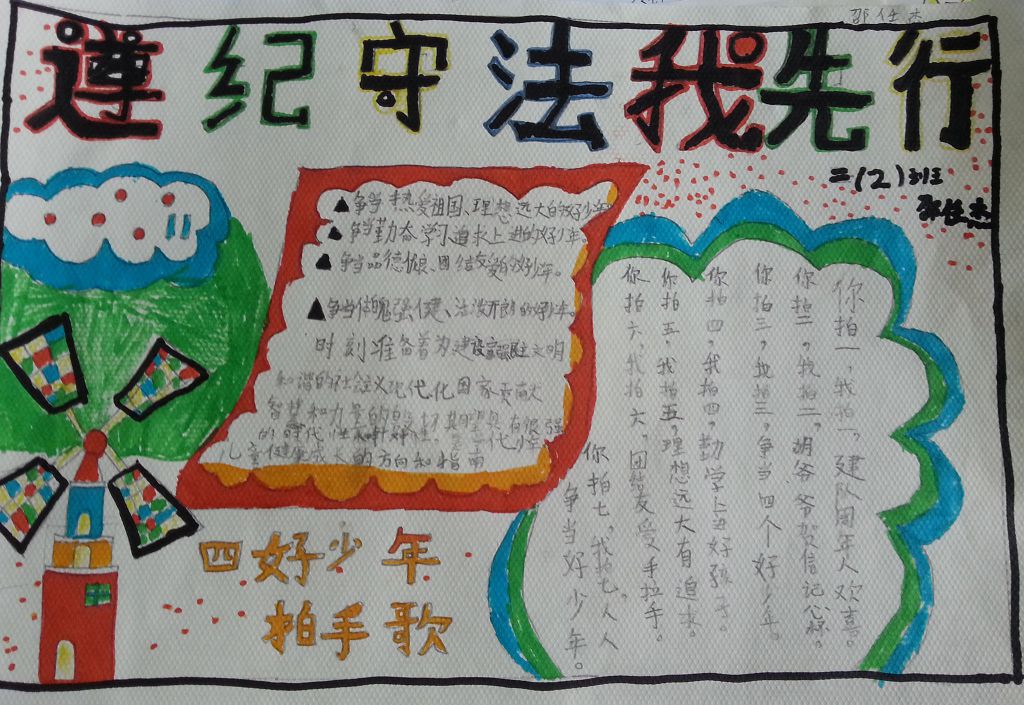 邵任杰
遵纪守法我先行
三(2)班
邵任杰
▲争当热爱祖国、理想远大的好少年
▲争当勤奋学习追求上进的好少年。
▲争当品德优良、团结友爱的好少年。
▲争当体魄强健、活泼开朗的好少年。
时刻准备着为建设富强民主文明
和谐的社会主义现代化国家贡献
智慧和力量的
儿童健康成长的方向和指南
四好少年
拍手歌
你拍一，我拍一，建队周年人欢喜。
你拍二，我拍二，胡爷爷贺信记心怀。
你拍三，我拍三，争当四个好少年。
你拍四，我拍四，勤学上进好孩子。
你拍五，我拍五，理想远大有追求。
你拍六，我拍六，团结友爱手拉手。
你拍七，我拍七，人人
争当好少年。